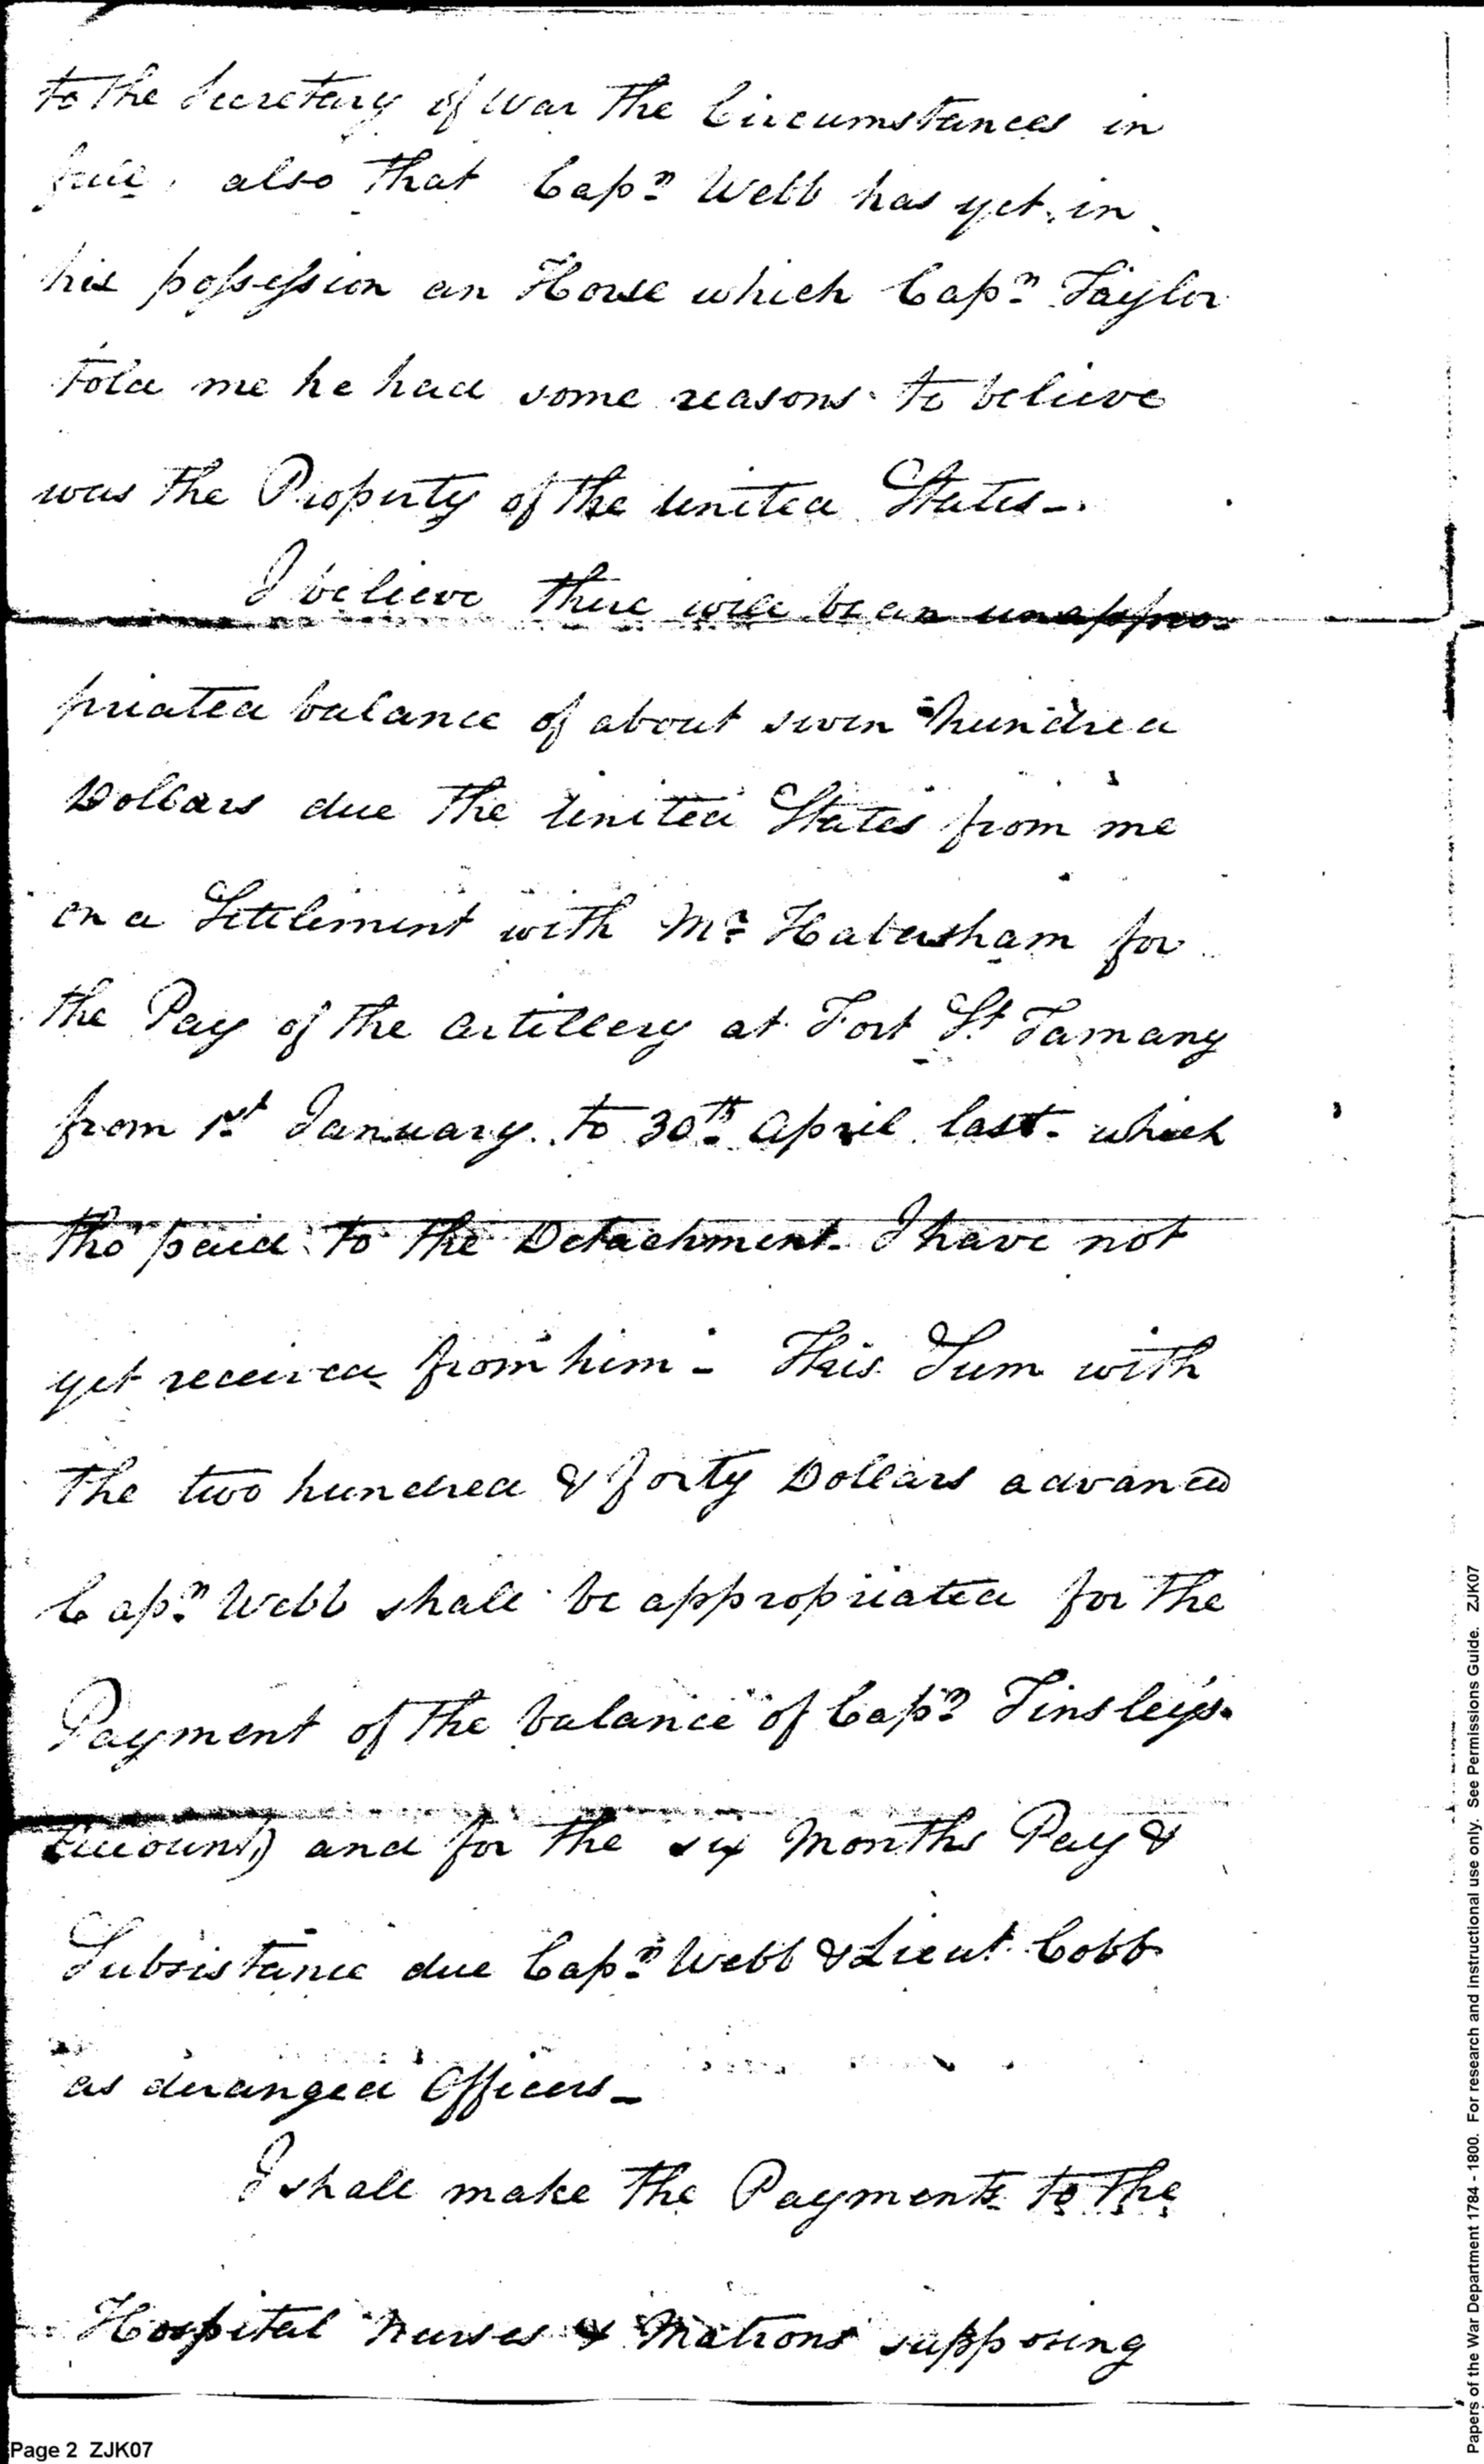 to the Secretary of War the Circumstances in
full, also that Capn Webb has yet in
his possession an Horse which Capn Taylor
told me he had some reasons to believe
was the Property of the United States-.
I believe there will be an unappro-
priated balance of about seven hundred
Dollars due the United States from me
on a Settlement with Mr Habersham for
the Pay of the Artillery at Fort St Tamany
from 1st January to 30th April last- which
tho' paid to the Detachment- I have not
yet received from him- This Sum with
the two hundred & forty Dollars advanced
Capn Webb shall be appropriated for the
Payment of the balance of Capn Tinsley's
Account, and for the six Months Pay &
Subsistance due Capn Webb & Lieut Cobb
as deranged Officers-
I shall make the Payments to the
Hospital Nurses & Matrons supposing
Page 2 ZJK07
Papers of the War Department 1784 - 1800. For research and instructional use only. See Permissions Guide. ZJK07